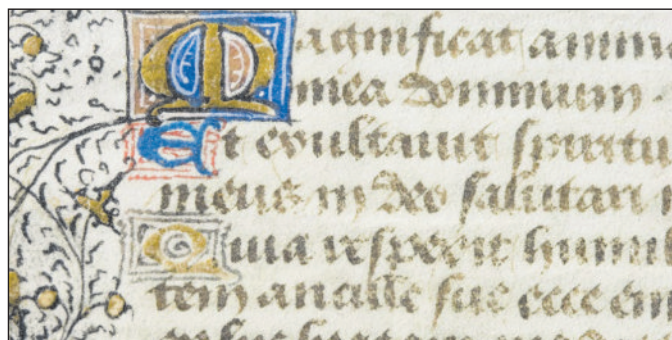 Magnificat anima
mea dominum
Et exultauit spiritu
meus in deo salutari
Quia respexit humili
tem ancille sue ecce eni